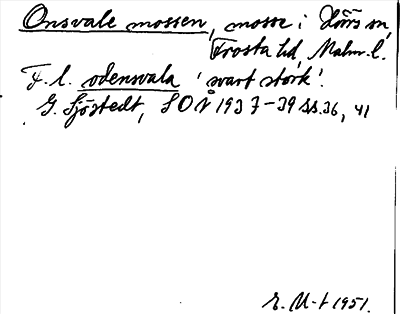 Onsvale mossen, mosse i Hörs sn,
Frosta hd, Malm. l.
F. l. odensvala 'svart stork'.
G. Sjöstedt, SOÅ 1937-39 ss. 36, 41
E. M-t 1951.